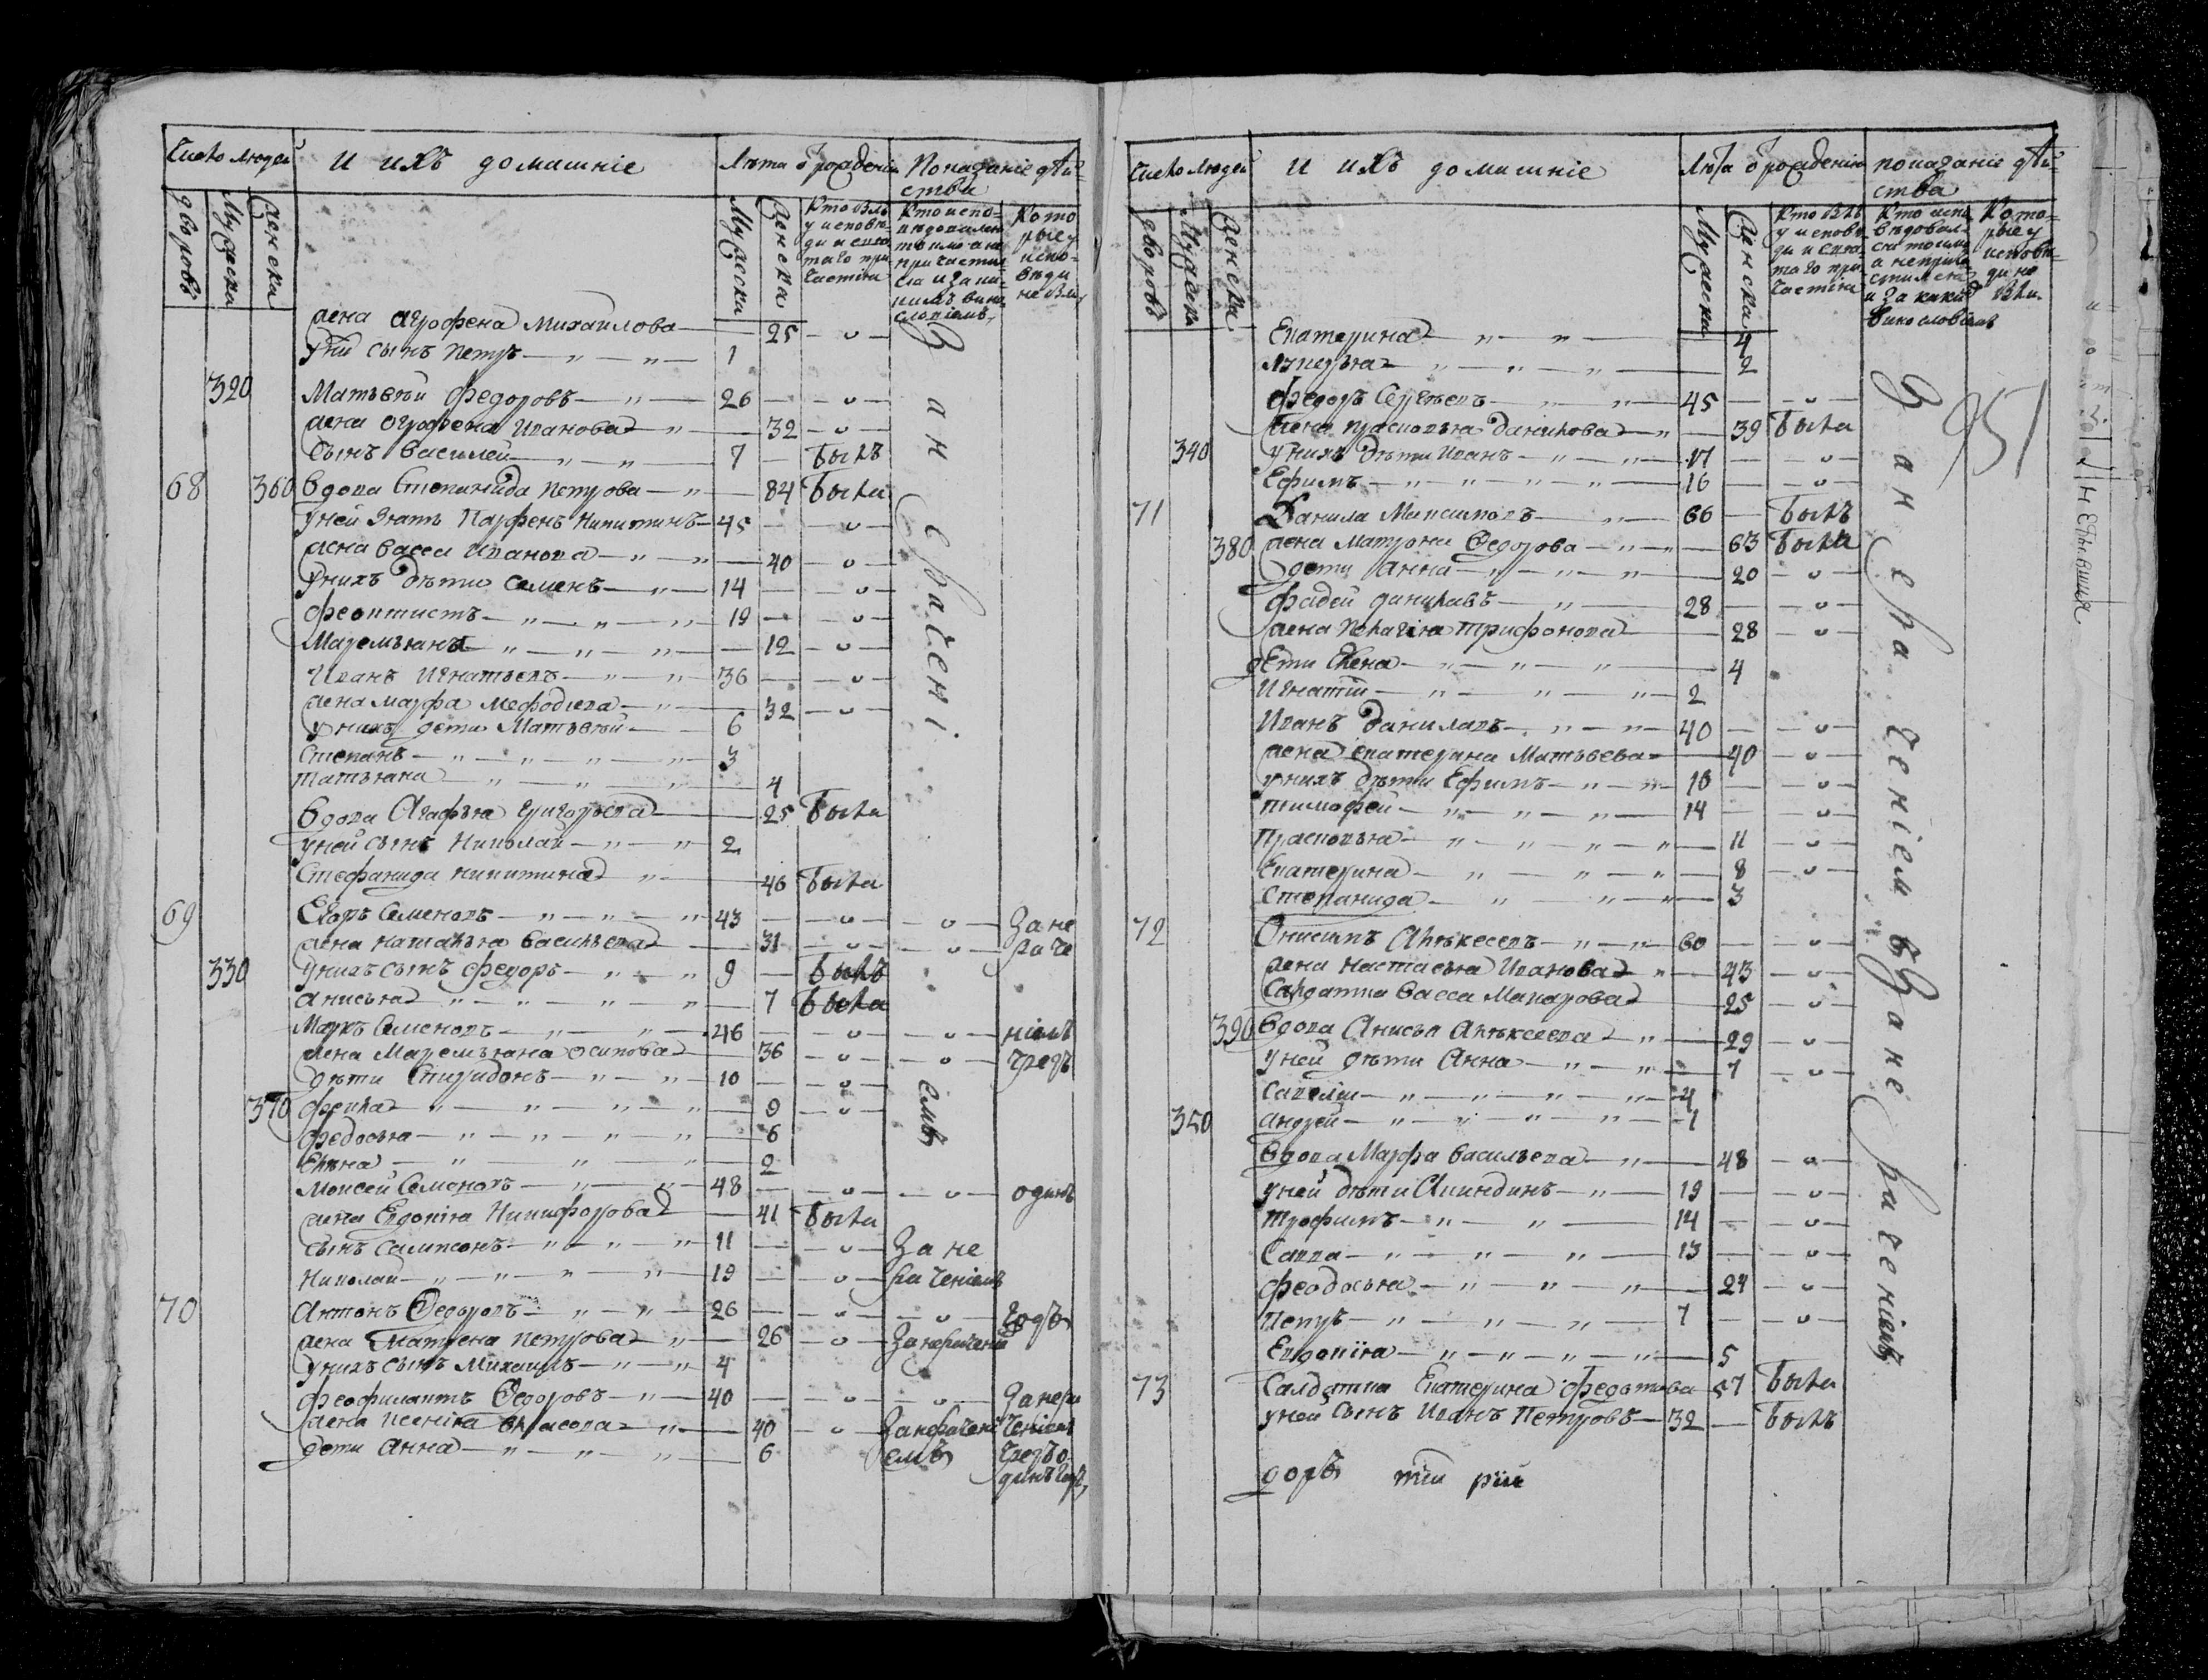 Число людей
и ихъ домашніе
Лѣта ѿ рожденія
Показаніе дѣйства
дворовъ
Мужеска
женска
Мужеска
женска
Кто былъ у исповѣди и святаго причастія
Кто исповѣдовался токмо а не причастился и за какимъ винословіемъ
Которые у исповѣди не были
жена Агрофена Михаилова 25
у нихъ сынъ Петръ 1
320 Матьвѣй Федоровъ 26
жена Огрофена Иванова 32
сынъ Василей 7 былъ
68 360 вдова Степанида Петрова 84 была
у ней зять Парфенъ Никитинъ 45
жена Васса Иванова 40
у нихъ дѣти Семенъ 14
Феоктистъ 19
Маремьяна 12
Иванъ Игнатьевъ 36
жена Марфа Мефодиева 32
у нихъ дети Матьвѣй 6
Степанъ 3
татьяна 4
вдова Агафья Григорьева 25 была
у ней сынъ Николай 2
Стефанида Никитина 46 была
69 Егоръ Семеновъ 43 За не
жена Наталья Васильева 31 раче
330 у нихъ сынъ Федоръ 9 былъ
Анисья 7 была
Маркъ Семеновъ 46 ніемъ
жена Маремьяна Осипова 36 чрезъ
дѣти Спиридонъ 10
370 Фекла 9
Федосья 6
Елена 2
Моисей Семеновъ 48 одинъ
жена Евдокія Никифорова 41 была
сынъ Сампсонъ 11 За не
Николай 19 раченіемъ
70 Антонъ Федоровъ 26 годъ
жена Матрена Петрова 26 За нераченіе
у нихъ сынъ Михаилъ 4
Феофилактъ Федоровъ 40 За нера
жена Ксенія 40 За нерачені ченіемъ
дети Анна 6 емъ чрезъ о
динъ годъ
За нерачені
емъ
Число людей
и ихъ домашніе
Лѣта ѿ рожденія
показаніе дѣйства
дворовъ
Мужеска
женска
Мужеска
женска
Кто былъ у исповѣди и святаго причастія
Кто исповѣдовался токмо а не причастился и за какимъ винословіемъ
Которые у исповѣди не были
951
Екатерина 4
Лукерья 2
Федоръ Сергѣевъ 45
жена Прасковья Данилова 39 была
340 у нихъ дѣти Иванъ 17
Ефимъ 16
71 Данила Максимовъ 66 былъ
380 жена Матрона Федорова 63 была
дети Анна 20
Фадей Даниловъ 28
жена Пелагія Трифонова 28
дети Елена 4
Игнатій 2
Иванъ Даниловъ 40
жена Екатерина Матьвеева 40
у нихъ дѣти Ефимъ 16
тимофей 14
Прасковья 11
Екатерина 8
Степанида 3
72 Онисимъ Алѣксеевъ 60
жена Настасья Иванова 43
Салдатка Васса Макарова 25
390 вдова Анисья Алѣксеева 29
у ней дѣти Анна 7
Савелій 4
350 Андрей 1
Вдова Марфа Васильева 48
у ней дѣти Акиндинъ 19
Трофимъ 14
Савва 13
Феодосья 24
Петръ 7
Евдокія 5
73 Салдатка Екатерина Федотова 57 была
у ней сынъ Иванъ Петровъ 32 былъ
За нераченіемъ За нераченіемъ